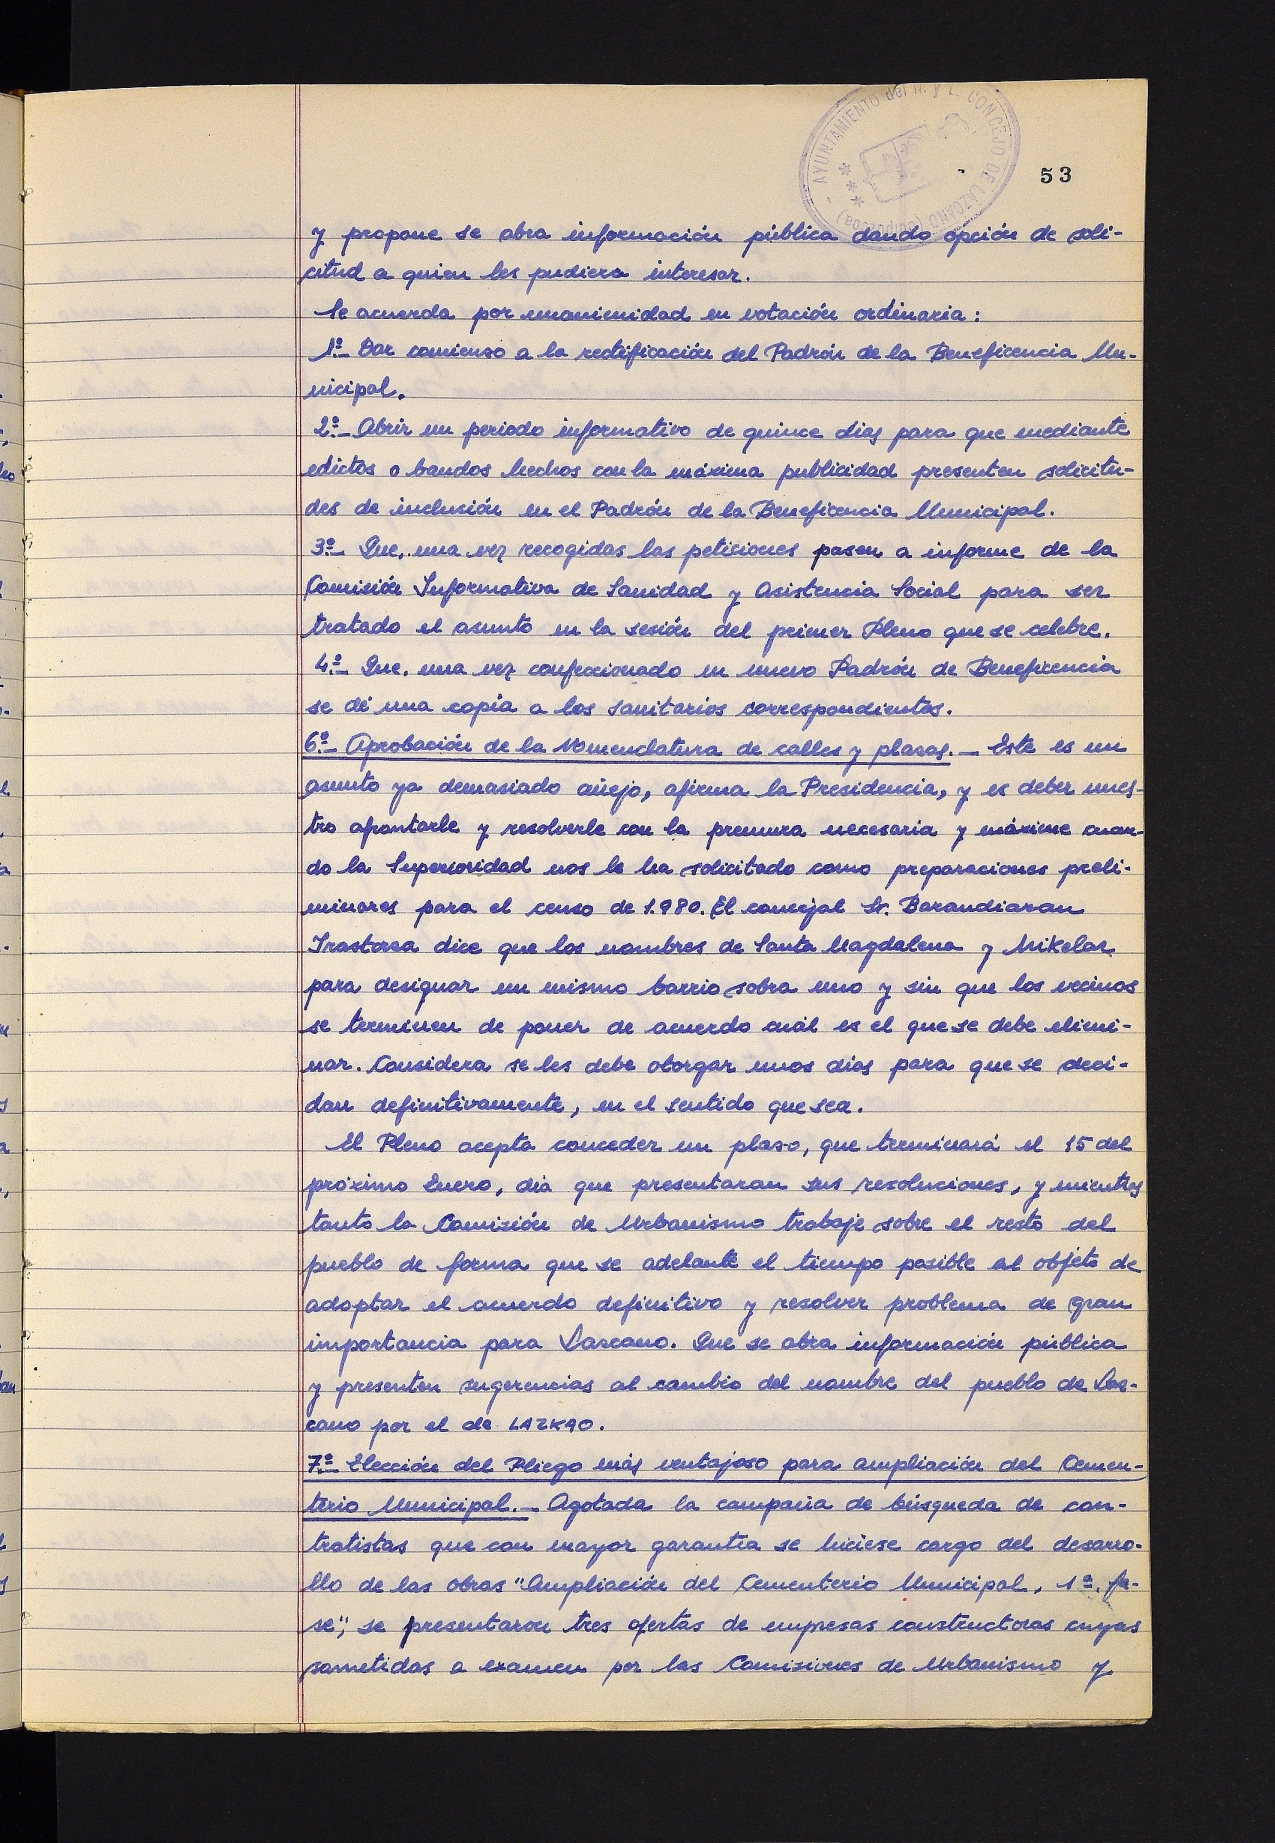 AYUNTAMIENTO del N. y L. CONCEJO DE LAZCANO (Guipúzcoa)
53
y propone se abra información pública dando opción de soli-
citud a quien les pudiera interesar.
Se acuerda por unanimidad en votación ordinaria:
1º- Dar comienso a la rectificación del Padrón de la Beneficencia Mu-
nicipal.
2º- Abrir un periodo informativo de quince dias para que mediante
edictos o bandos hechos con la máxima publicidad presenten solicitu-
des de inclusión en el Padrón de la Beneficencia Municipal.
3º- Que, una vez recogidas las peticiones pasen a informe de la
Comisión Informativa de Sanidad y Asistencia Social para ser
tratado el asunto en la sesión del primer Pleno que se celebre.
4º- Que, una vez confeccionado un nuevo Padrón de Beneficencia
se dé una copia a los sanitarios correspondientes.
6º- Aprobación de la Nomenclatura de calles y plazas. - Este es un
asunto ya demasiado añejo, afirma la Presidencia, y es deber nues-
tro afrontarle y resolverle con la premura necesaria y máxime cuan-
do la Superioridad nos le ha solicitado como preparaciones preli-
minares para el censo de 1.980. El concejal Sr. Barandiaran
Irastorza dice que los nombres de Santa Magdalena y Mikelar
para designar un mismo barrio sobra uno y sin que los vecinos
se terminen de poner de acuerdo cuál es el que se debe elimi-
nar. Considera se les debe otorgar unos dias para que se deci-
dan definitivamente, en el sentido que sea.
El Pleno acepta conceder un plaso, que terminará el 15 del
próximo Enero, dia que presentaran sus resoluciones, y mientras
tanto la Comisión de Urbanismo trabaje sobre el resto del
pueblo de forma que se adelante el tiempo posible al objeto de
adoptar el acuerdo definitivo y resolver problema de gran
importancia para Lazcano. Que se abra información pública
y presenten sugerencias al cambio del nombre del pueblo de Laz-
cano por el de LAZKAO.
7º- Elección del Pliego más ventajoso para ampliación del Cemen-
terio Municipal. - Agotada la campaña de búsqueda de con-
tratistas que con mayor garantía se hiciese cargo del desarro-
llo de las obras "Ampliación del Cementerio Municipal, 1ª. fa-
se", se presentaron tres ofertas de empresas constructoras cuyas
sometidas a examen por las Comisiones de Urbanismo y